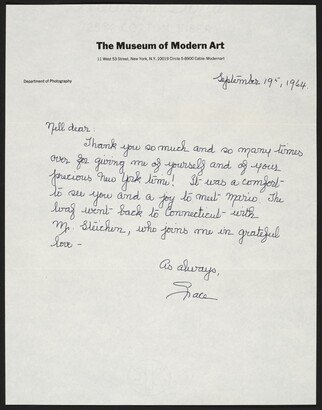 The Museum of Modern Art
11 West 53 Street, New York, N.Y. 10019 Circle 5-8900 Cable: Modernart
Department of Photography
September 19th, 1964
Nell dear.
Thank you so much and so many times
over for giving me of yourself and of your
precious New York time! It was a comfort
to see you and a joy to meet Mario. The
loaf went back to Connecticut with
Mr. Steichen, who joins me in grateful
love -
As always,
Grace